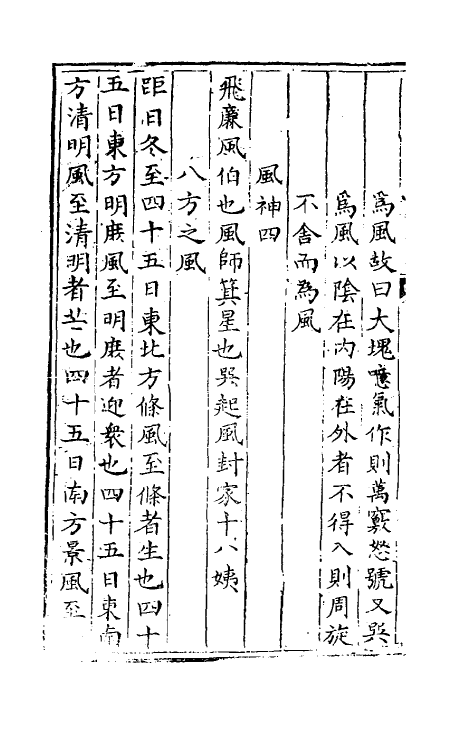 為風故曰大塊噫氣作則萬竅怒號又巽
為風以陰在內陽在外者不得入則周旋
不舍而為風
風神四
飛廉風伯也風師箕星也巽起風封家十八姨
八方之風
距日冬至四十五日東北方條風至條者生也四十
五日東方明庶風至明庶者迎衆也四十五日東南
方清明風至清明者芒也四十五日南方景風至